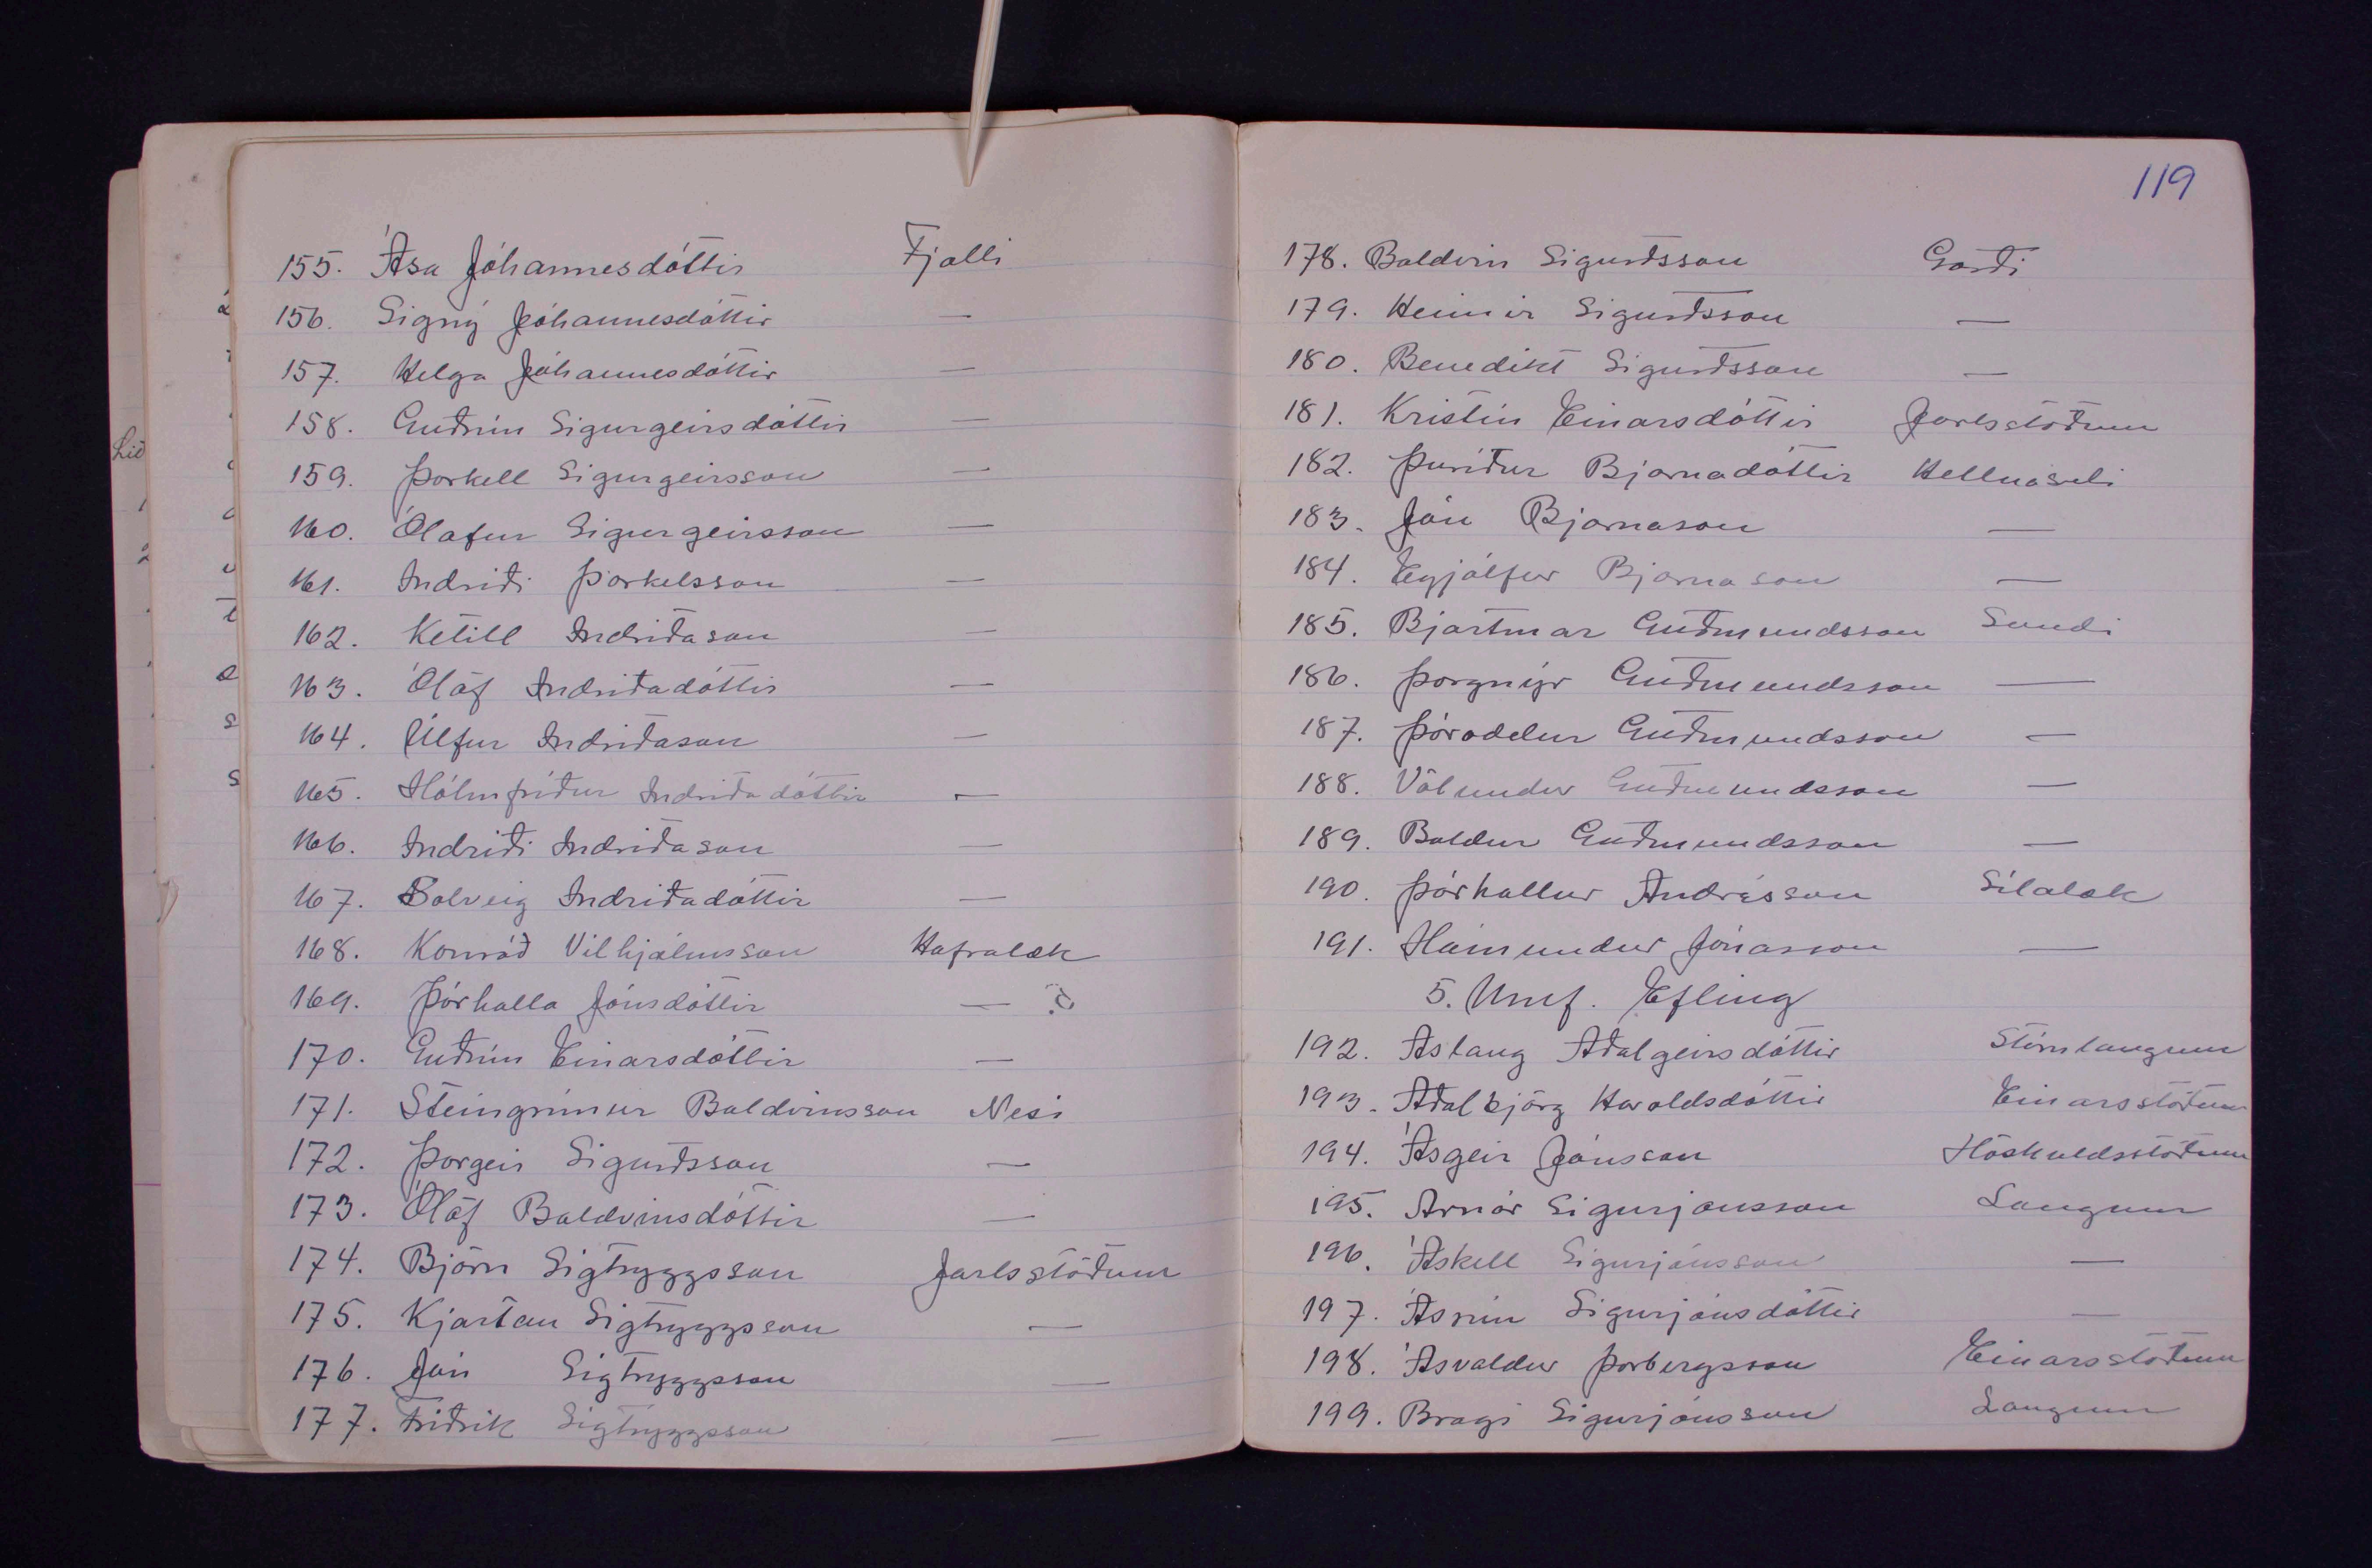 155. Ása Jóhannesdóttir Fjalli
156. Signý Jóhannesdóttir —
157. Helga Jóhannesdóttir —
158. Guðrún Sigurgeirsdóttir —
159. Þorkell Sigurgeirsson —
160. Ólafur Sigurgeirsson —
161. Indriði Þorkelsson —
162. Ketill Indriðason —
163. Ólöf Indriðadóttir —
164. Úlfur Indriðason —
165. Hólmfríður Indriðadóttir —
166. Indriði Indriðason —
167. Solveig Indriðadóttir —
168. Konráð Vilhjálmsson Hafralæk
169. Þórhalla Jónsdóttir — ?
170. Guðrún Einarsdóttir —
171. Steingrímur Baldvinsson Nesi
172. Þorgeir Sigurðsson —
173. Ólöf Baldvinsdóttir —
174. Björn Sigtryggsson Jarlsstöðum
175. Kjartan Sigtryggsson —
176. Jón Sigtryggsson —
177. Friðrik Sigtryggsson —
119
178. Baldvin Sigurðsson Garði
179. Heimir Sigurðsson —
180. Benedikt Sigurðsson —
181. Kristín Einarsdóttir Jarlsstöðum
182. Þuríður Bjarnadóttir Hellnaseli
183. Jón Bjarnason —
184. Eyjólfur Bjarnason —
185. Bjartmar Guðmundsson Sandi
186. Þorgnýr Guðmundsson —
187. Þóroddur Guðmundsson —
188. Völundur Guðmundsson —
189. Baldur Guðmundsson —
190. Þórhallur Andrésson Sílalæk
191. Hámundur Jónasson —
5. Umf. Efling
192. Áslaug Aðalgeirsdóttir Stórulaugum
193. Aðalbjörg Haraldsdóttir Einarsstöðum
194. Ásgeir Jónsson Höskuldsstöðum
195. Arnór Sigurjónsson Laugum
196. Áskell Sigurjónsson —
197. Ásrún Sigurjónsdóttir —
198. Ásvaldur Þorbergsson Einarsstöðum
199. Bragi Sigurjónsson Laugum